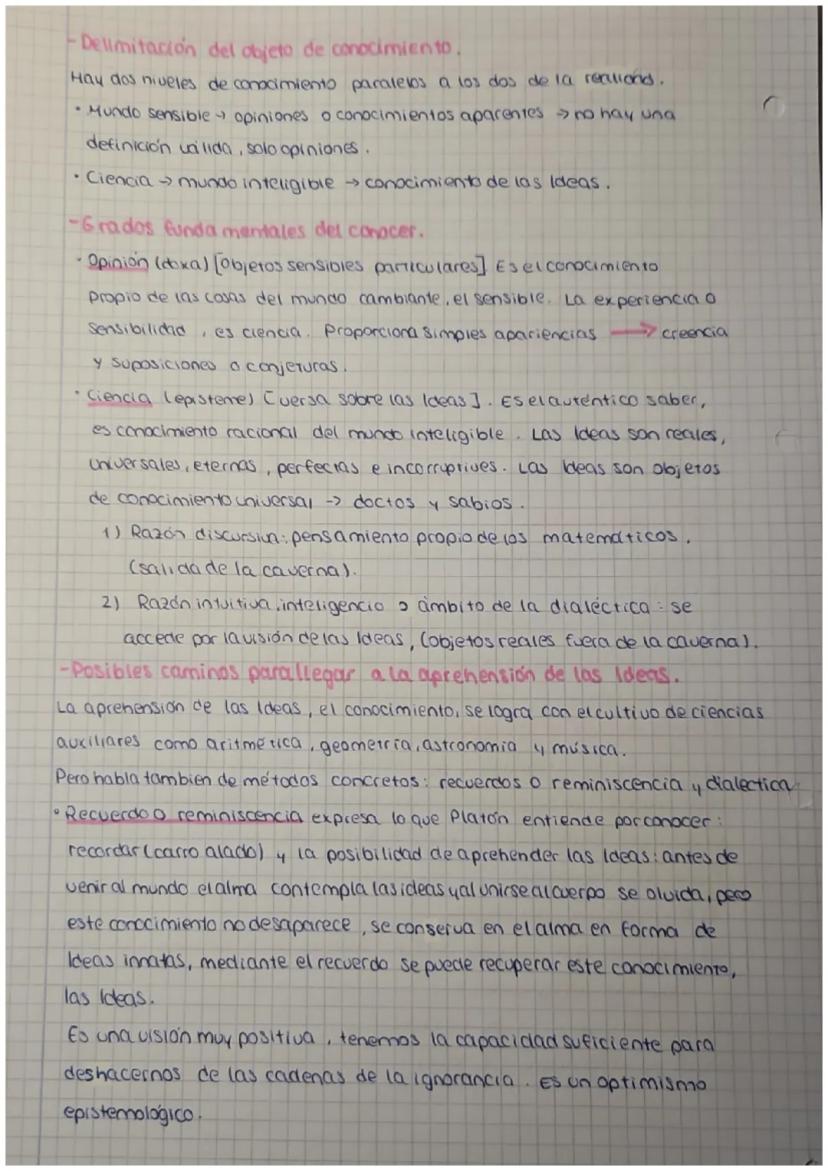 - Delimitación del objeto de conocimiento.
Hay dos niveles de conocimiento paralelos a los dos de la realidad.
• Mundo sensible → opiniones o conocimientos aparentes → no hay una
definición válida, solo opiniones.
• Ciencia → mundo inteligible → conocimiento de las Ideas.
- Grados fundamentales del conocer.
• Opinión (doxa) [objetos sensibles particulares] Es el conocimiento
propio de las cosas del mundo cambiante, el sensible. La experiencia o
sensibilidad, es ciencia. Proporciona simples apariencias → creencia
y suposiciones o conjeturas.
• Ciencia (episteme) [versa sobre las Ideas]. Es el auténtico saber,
es conocimiento racional del mundo inteligible. Las Ideas son reales,
universales, eternas, perfectas e incorruptives. Las Ideas son objetos
de conocimiento universal -> doctos y sabios.
1) Razón discursiva: pensamiento propio de los matemáticos.
(salida de la caverna).
2) Razón intuitiva, inteligencio o ámbito de la dialéctica: se
accede por la visión de las Ideas, (objetos reales fuera de la caverna).
- Posibles caminos para llegar a la aprehensión de las Ideas.
La aprehensión de las Ideas, el conocimiento, se logra con el cultivo de ciencias
auxiliares como aritmética, geometría, astronomía y música.
Pero habla tambien de métodos concretos: recuerdos o reminiscencia y dialectica
• Recuerdo o reminiscencia expresa lo que Platón entiende por conocer:
recordar (carro alado) y la posibilidad de aprehender las Ideas: antes de
venir al mundo el alma contempla las ideas y al unirse al cuerpo se olvida, pero
este conocimiento no desaparece, se conserva en el alma en forma de
Ideas innatas, mediante el recuerdo se puede recuperar este conocimiento,
las Ideas.
Es una visión muy positiva, tenemos la capacidad suficiente para
deshacernos de las cadenas de la ignorancia. Es un optimismo
epistemológico.